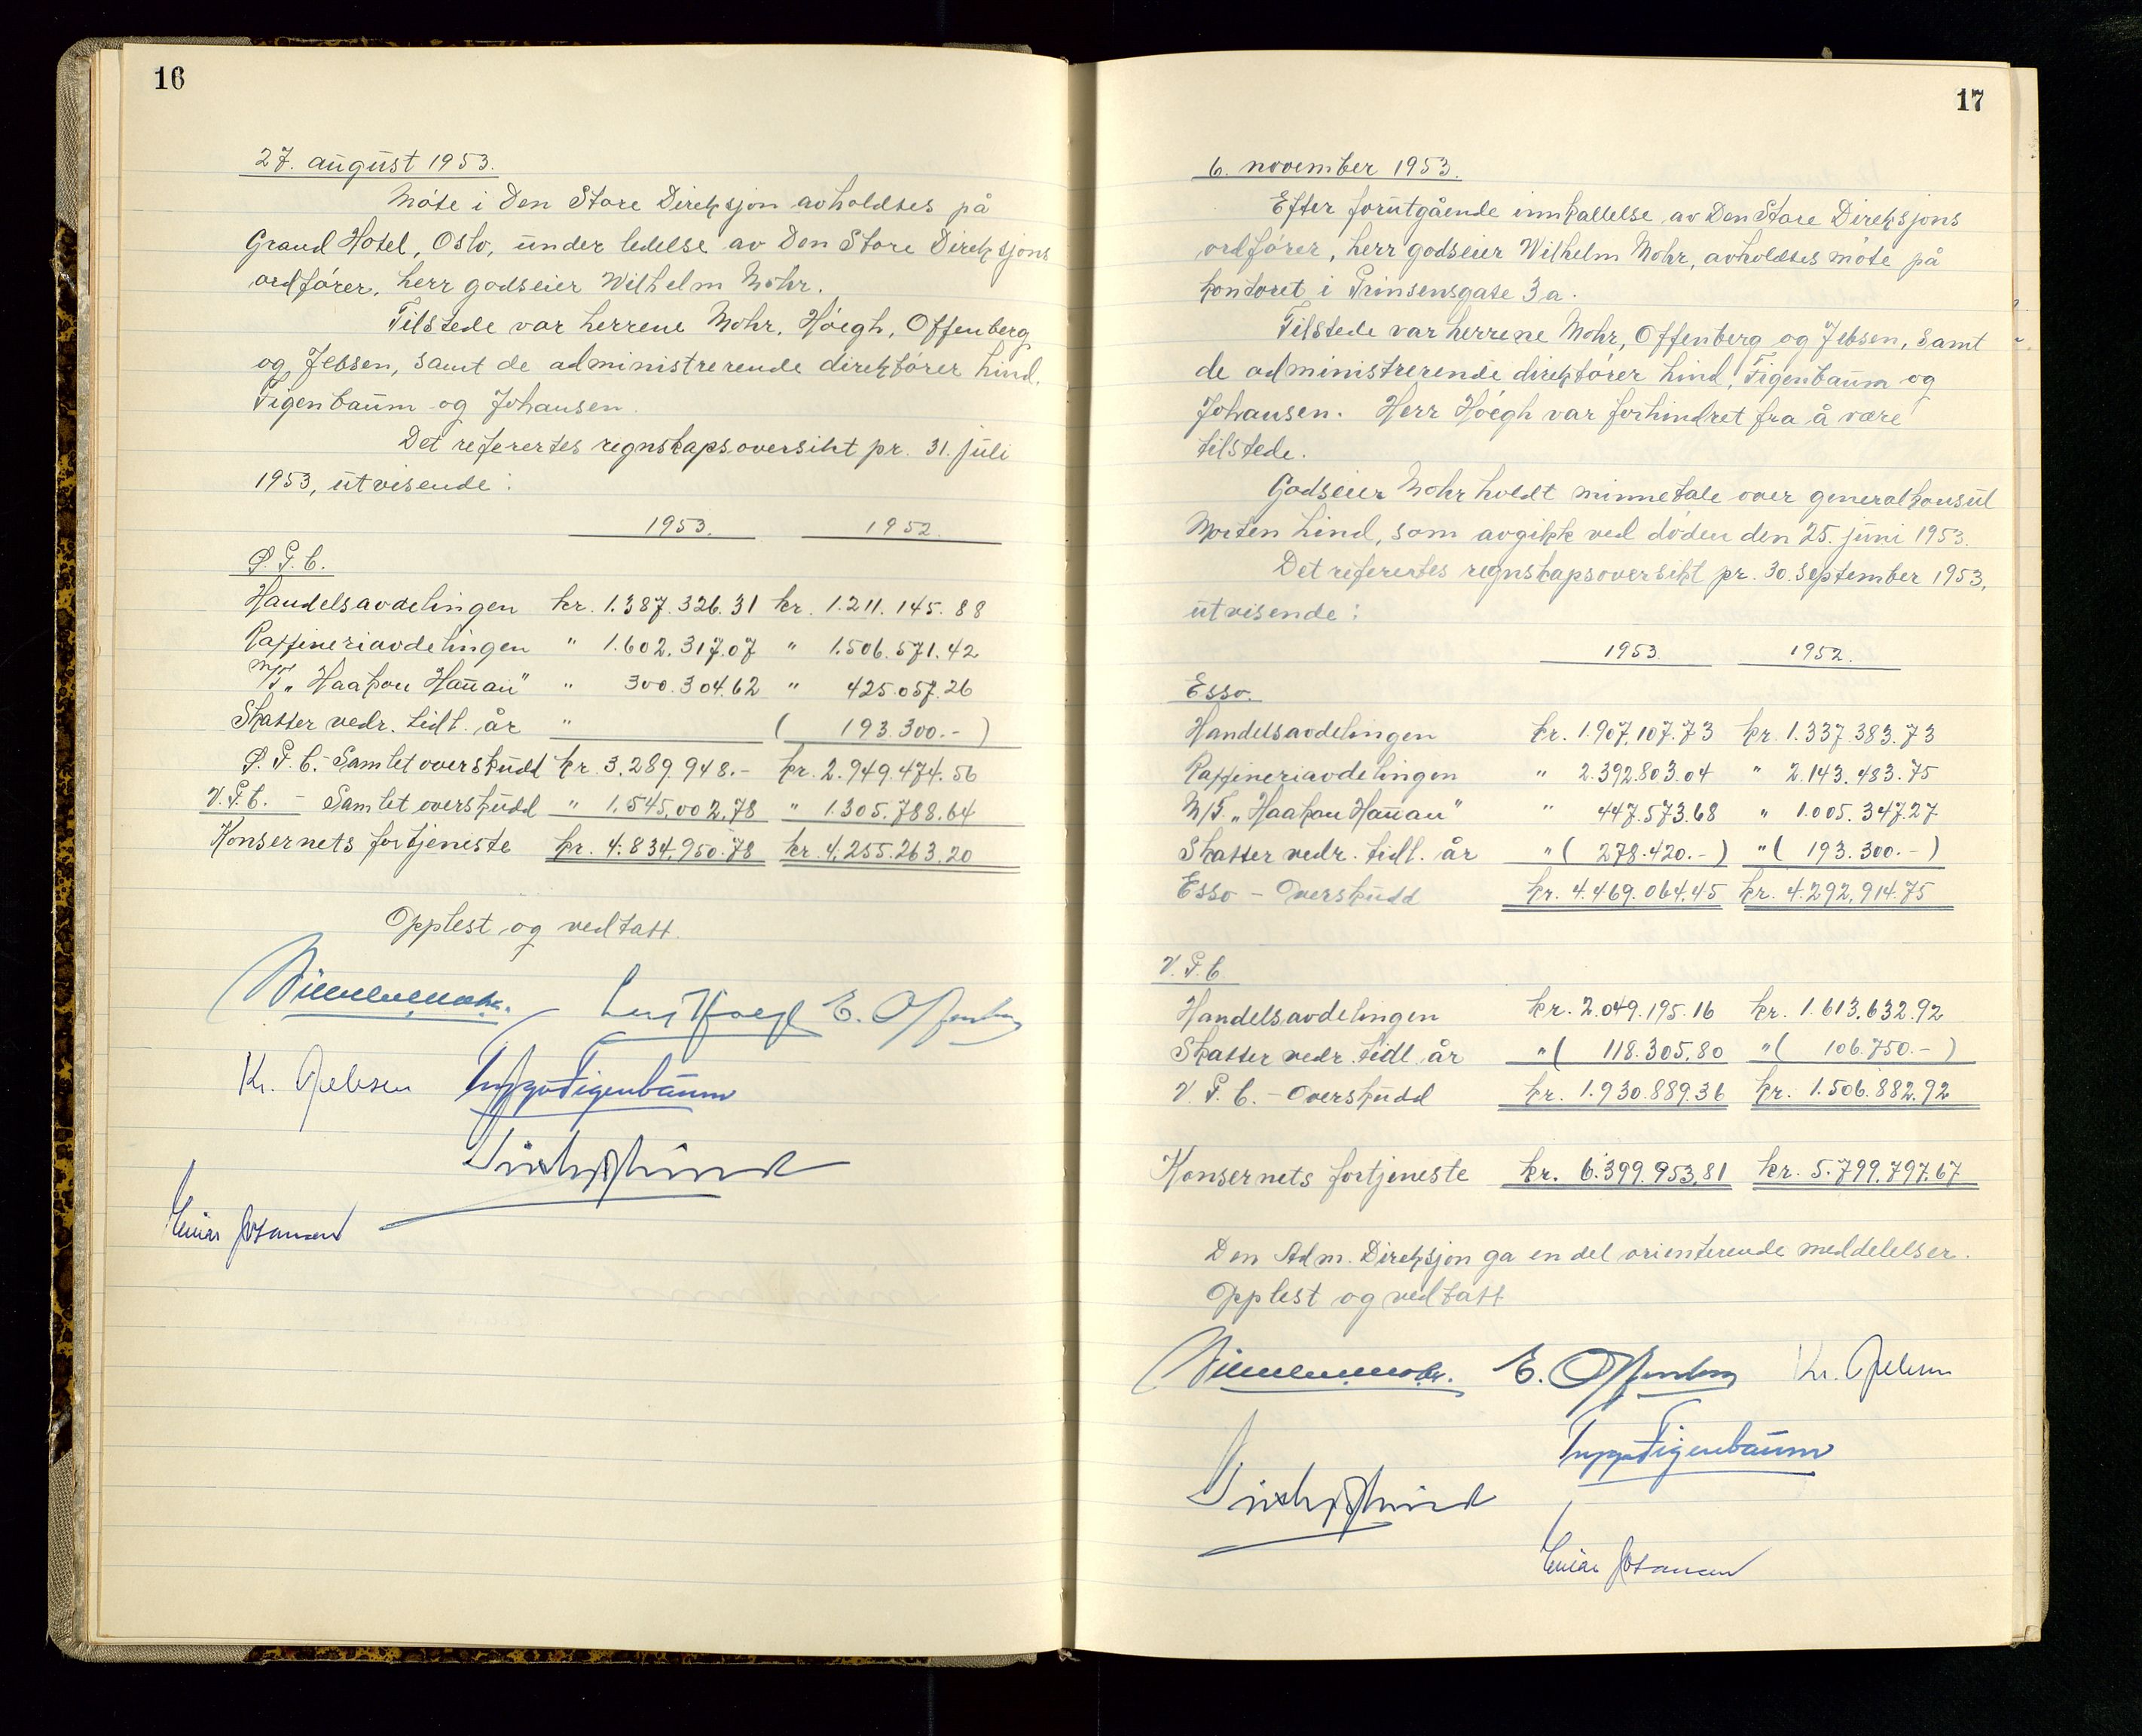 16
27. august 1953.
Møte i Den Store Direksjon avholdtes på
Grand Hotel, Oslo, under ledelse av Den Store Direksjons
ordfører, herr godseier Wilhelm Mohr.
Tilstede var herrene Mohr, Høegh, Offenberg
og Jebsen, samt de administrerende direktører Lind,
Figenbaum og Johansen.
Det referertes regnskapsoversikt pr. 31. juli
1953, utvisende:
1953. 1952.
Ø.P.C.
Handelsavdelingen kr. 1.387.326.31 kr. 1.211.145.88
Raffineriavdelingen " 1.602.317.07 " 1.506.571.42
M/T "Haakon Hauan" " 300.304.62 " 425.057.26
Skatter vedr. tidl. år " ( 193.300.- )
Ø.P.C. - Samlet overskudd kr. 3.289.948.- kr. 2.949.474.56
V.P.C. - Samlet overskudd " 1.545.002,78 " 1.305.788.64
Konsernets fortjeneste kr. 4.834.950.78 kr. 4.255.263,20
Opplest og vedtatt.
Wilhelm Mohr. Leif Høegh E. Offenberg
Kr. Jebsen Figenbaum
Lind
Einar Johansen
17
6. november 1953.
Efter forutgående innkallelse av Den Store Direksjons
ordfører, herr godseier Wilhelm Mohr, avholdtes møte på
kontoret i Prinsensgate 3a.
Tilstede var herrene Mohr, Offenberg og Jebsen, samt
de administrerende direktører Lind, Figenbaum og
Johansen. Herr Høegh var forhindret fra å være
tilstede.
Godseier Mohr holdt minnetale over generalkonsul
Morten Lind, som avgikk ved døden den 25. juni 1953.
Det referertes regnskapsoversikt pr. 30. september 1953,
utvisende:
1953. 1952.
Esso.
Handelsavdelingen kr. 1.907.107.73 kr. 1.337.383.73
Raffineriavdelingen " 2.392.803.04 " 2.143.483.75
M/T. "Haakon Hauan" " 447.573.68 " 1.005.347.27
Skatter vedr. tidl. år " ( 278.420.- ) " ( 193.300.- )
Esso - Overskudd kr. 4.469.064.45 kr. 4.292,914.75
V.P.C.
Handelsavdelingen kr. 2.049.195.16 kr. 1.613.632.92
Skatter vedr. tidl. år " ( 118.305,80 " ( 106.750.- )
V.P.C. - Overskudd kr. 1.930.889.36 kr. 1.506.882,92
Konsernets fortjeneste kr. 6.399.953,81 kr. 5.799.797.67
Den Adm. Direksjon ga en del orienterende meddelelser.
Opplest og vedtatt
Wilhelm Mohr. E. Offenberg Kr. Jebsen
Figenbaum
Lind
Einar Johansen